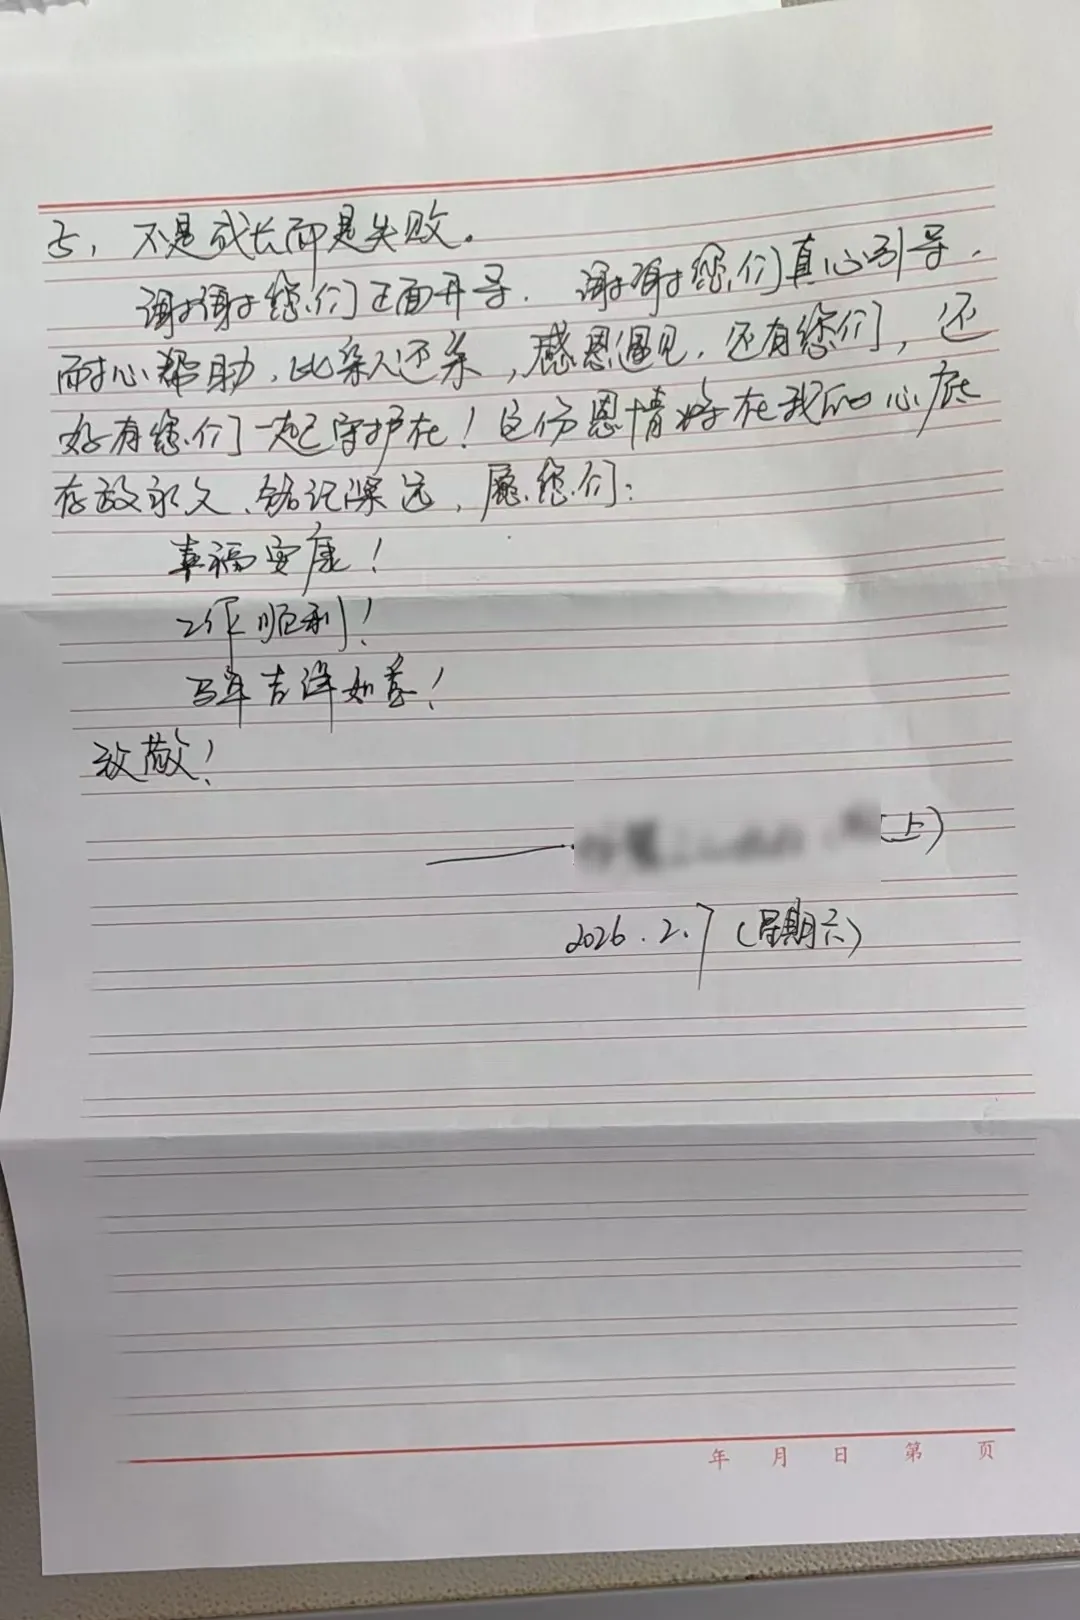 去，不是成长而是失败。
谢谢您们正面开导．谢谢您们真心引导．
耐心帮助．比亲人还亲，感恩遇见．还有您们，还
好有您们一起守护在！这份恩情将在我的心底
存放永久、铭记深远，愿您们：
幸福安康！
工作顺利！
马年吉祥如意！
致敬！
（上）
2026．2．7（星期六）
年 月 日 第 页